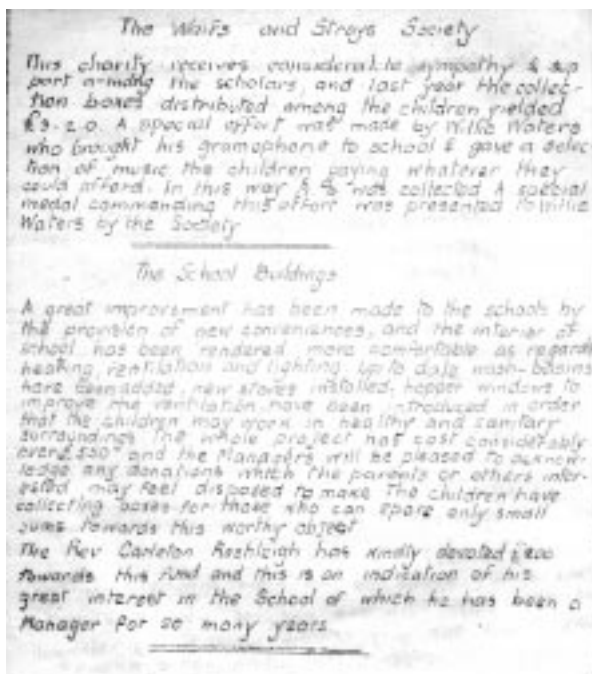 The Waifs and Strays Society
This charity receives considerable sympathy & sup
port among the scholars, and last year the collec-
tion boxes distributed among the children yielded
£3-2-0. A special effort was made by Willie Waters
who brought his gramophone to school & gave a selec
tion of music the children paying whatever they
could afford. In this way was collected A special
medal commending this effort was presented to Willie
Waters by the Society
The School Buildings
A great improvement has been made to the schools by
the provision of new conveniences, and the interior of
school has been rendered more comfortable as regards
heating, ventilation and lighting. Up to date wash-basins
have been added, new stoves installed, hopper windows to
improve the ventilation have been introduced in order
that the children may work in healthy and sanitary
surroundings The whole project has cost considerably
over and the Managers will be pleased to acknow-
ledge any donations which the parents or others inter-
ested may feel disposed to make The children have
collecting boxes for those who can spare only small
sums towards this worthy object
The Rev Carleton Rashleigh has kindly devoted
towards this fund and this is an indication of his
great interest in the School of which he has been a
Manager for so many years